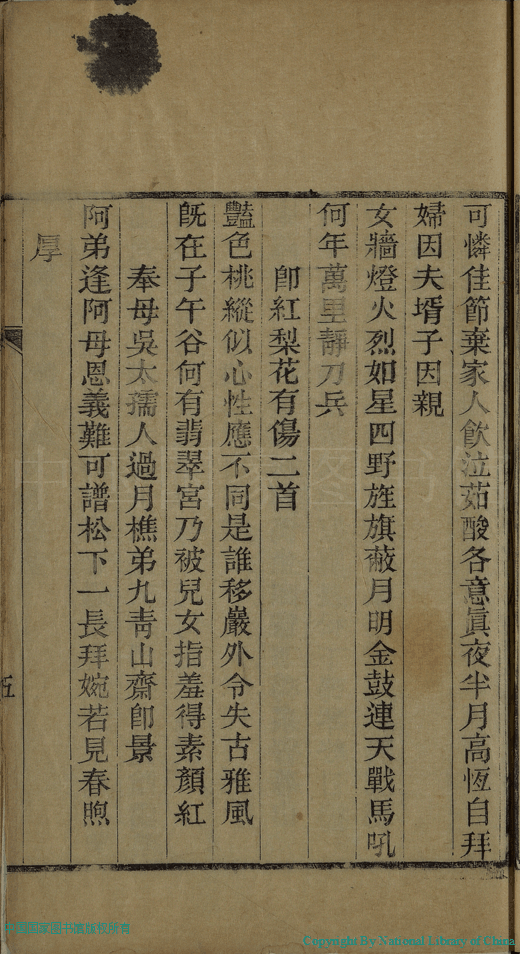 可憐佳節棄家人飲泣茹酸各意眞夜半月高恆自拜
婦因夫壻子因親
女牆燈火烈如星四野旌旗蔽月明金鼓連天戰馬吼
何年萬里靜刀兵
卽紅梨花有傷二首
豔色桃縱似心性應不同是誰移嚴外令失古雅風
旣在子午谷何有翡翠宮乃被兒女指羞得素顏紅
奉母吳太孺人過月樵弟九靑山齋卽景
阿弟逢阿母恩義難可譜松下一長拜婉若見春煦
厚
五
Copyright By National Library of China